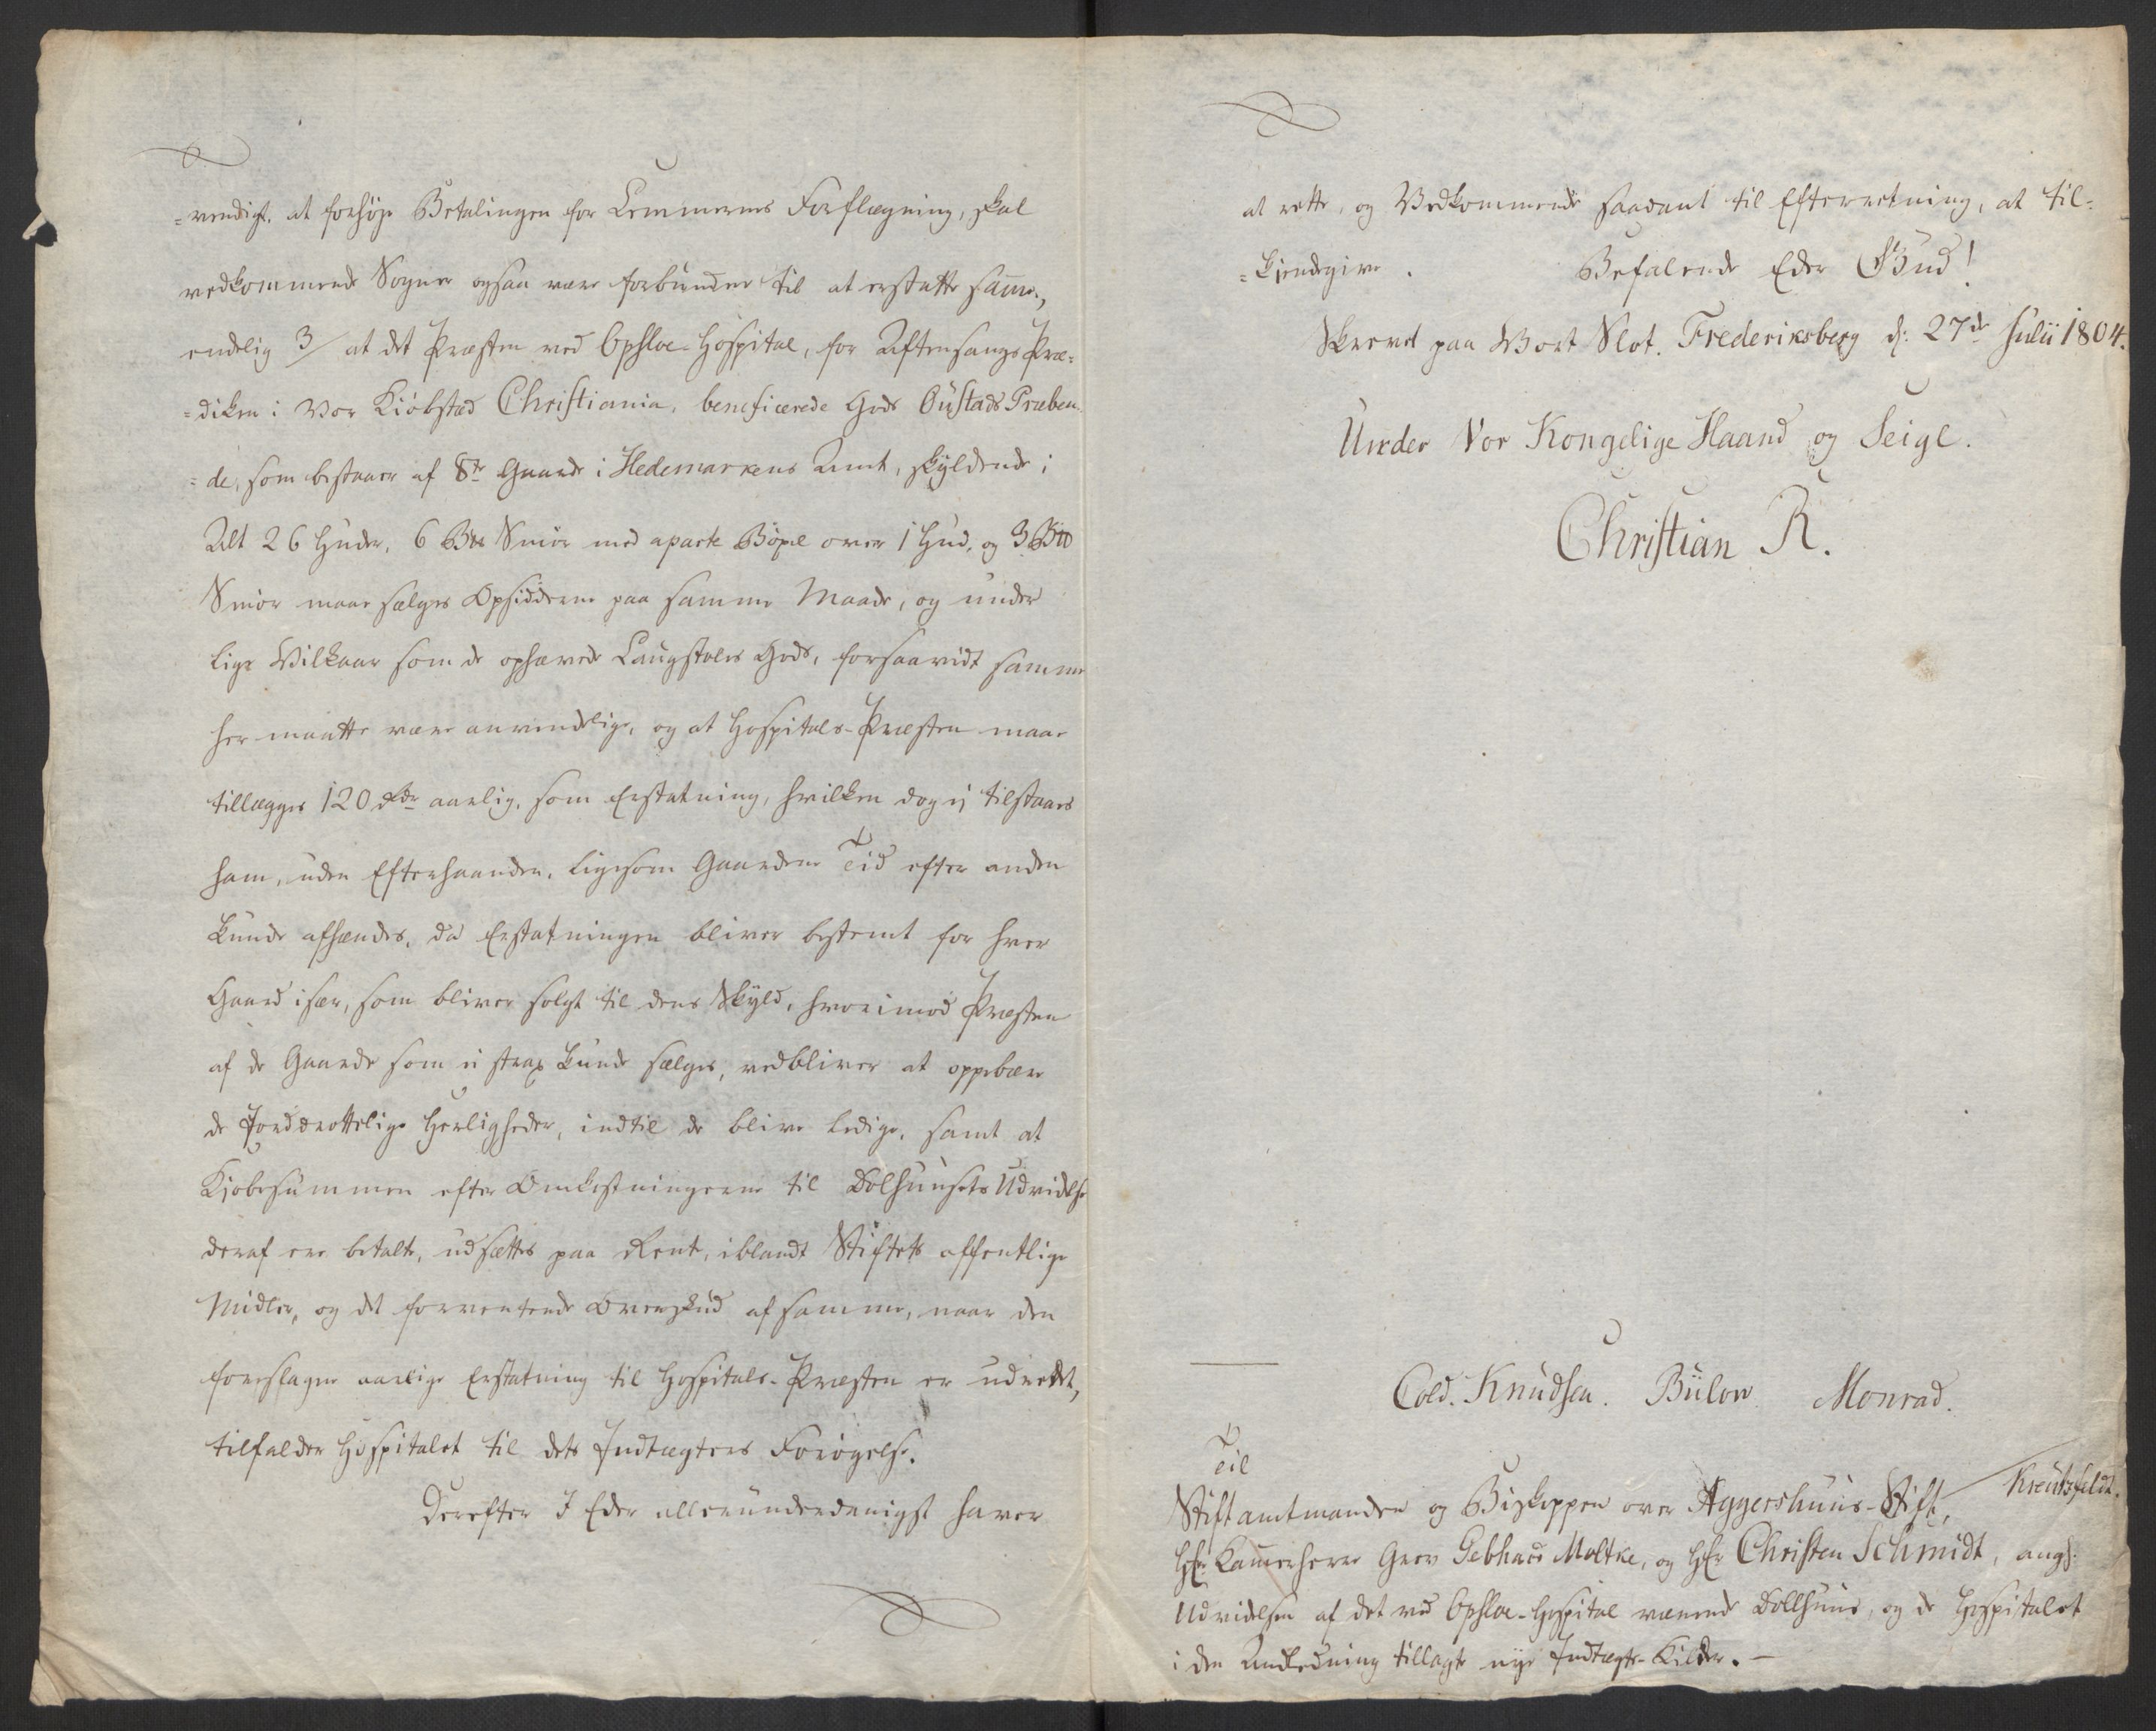 =vendigt, at forhøje Betalingen for Lemmernes Forflægning, skal
vedkommende Sogner ogsaa være forbunden til at erstatte samme,
endelig 3/ at det Præsten ved Opsloe-Hospital, for Aftensangs Præ=
=diken i Vor Kiöbstad Christiania, beneficerede Gods Oustads Præben-
=de, som bestaaer af 8te Gaarde i Hedemarkens Amt, skyldende i
Alt 26 Huder, 6 Smör med aparte Böxel over 1 Hud, og 3
Smör maae sælges Opsidderne paa samme Maade, og under
lige Vilkaar som de ophævede Laugstoles Gods, forsaavidt samme
her maatte være anvendelige, og at Hospitals-Præsten maae
tillægges 120 rdr aarlig, som Erstatning, hvilken dog ej tilstaaes
ham, uden Efterhaanden, ligesom Gaardene Tid efter anden
kunde afhændes, da Erstatningen bliver bestemt for hver
Gaard især, som bliver solgt til dens Skyld, hvorimod Præsten
af de Gaarde som ei strax kunde sælges, vedbliver at oppebære
de Jorddrottelige Herligheder, indtil de blive ledige, samt at
Kjøbesummen efter Omkostningerne til Dolhuusets Udvidelse
deraf ere betalte, udsættes paa Rente, iblandt Stiftets offentlige
Midler, og det forventende Overskud af samme, naar den
foreslagne aarlige Erstatning til Hospitals-Præsten er udredet,
tilfalder Hospitalet til dets Indtægters Forøgelse.
Derefter I Eder allerunderdanigst haver
at rette, og Vedkommende saadant til Efterretning, at til=
=kjendegive. Befalende Eder Gud!
Skrevet paa Vort Slot Frederiksberg d: 27de Julii 1804.
Under Vor Kongelige Haand og Seigl.
Christian R.
Cold. Knudsen. Bülow. Monrad.
Kreutzfeldt.
Til
Stiftamtmanden og Biskoppen over Aggershuus-Stift,
Hr: Kammerherre Grev Gebhard Moltke, og Hr Christen Schmidt, angd:
Udvidelsen af det ved Opsloe-Hospital værende Dollhuus, og de Hospitalet
i den Anledning tillagte nye Indtægts-Kilder. –